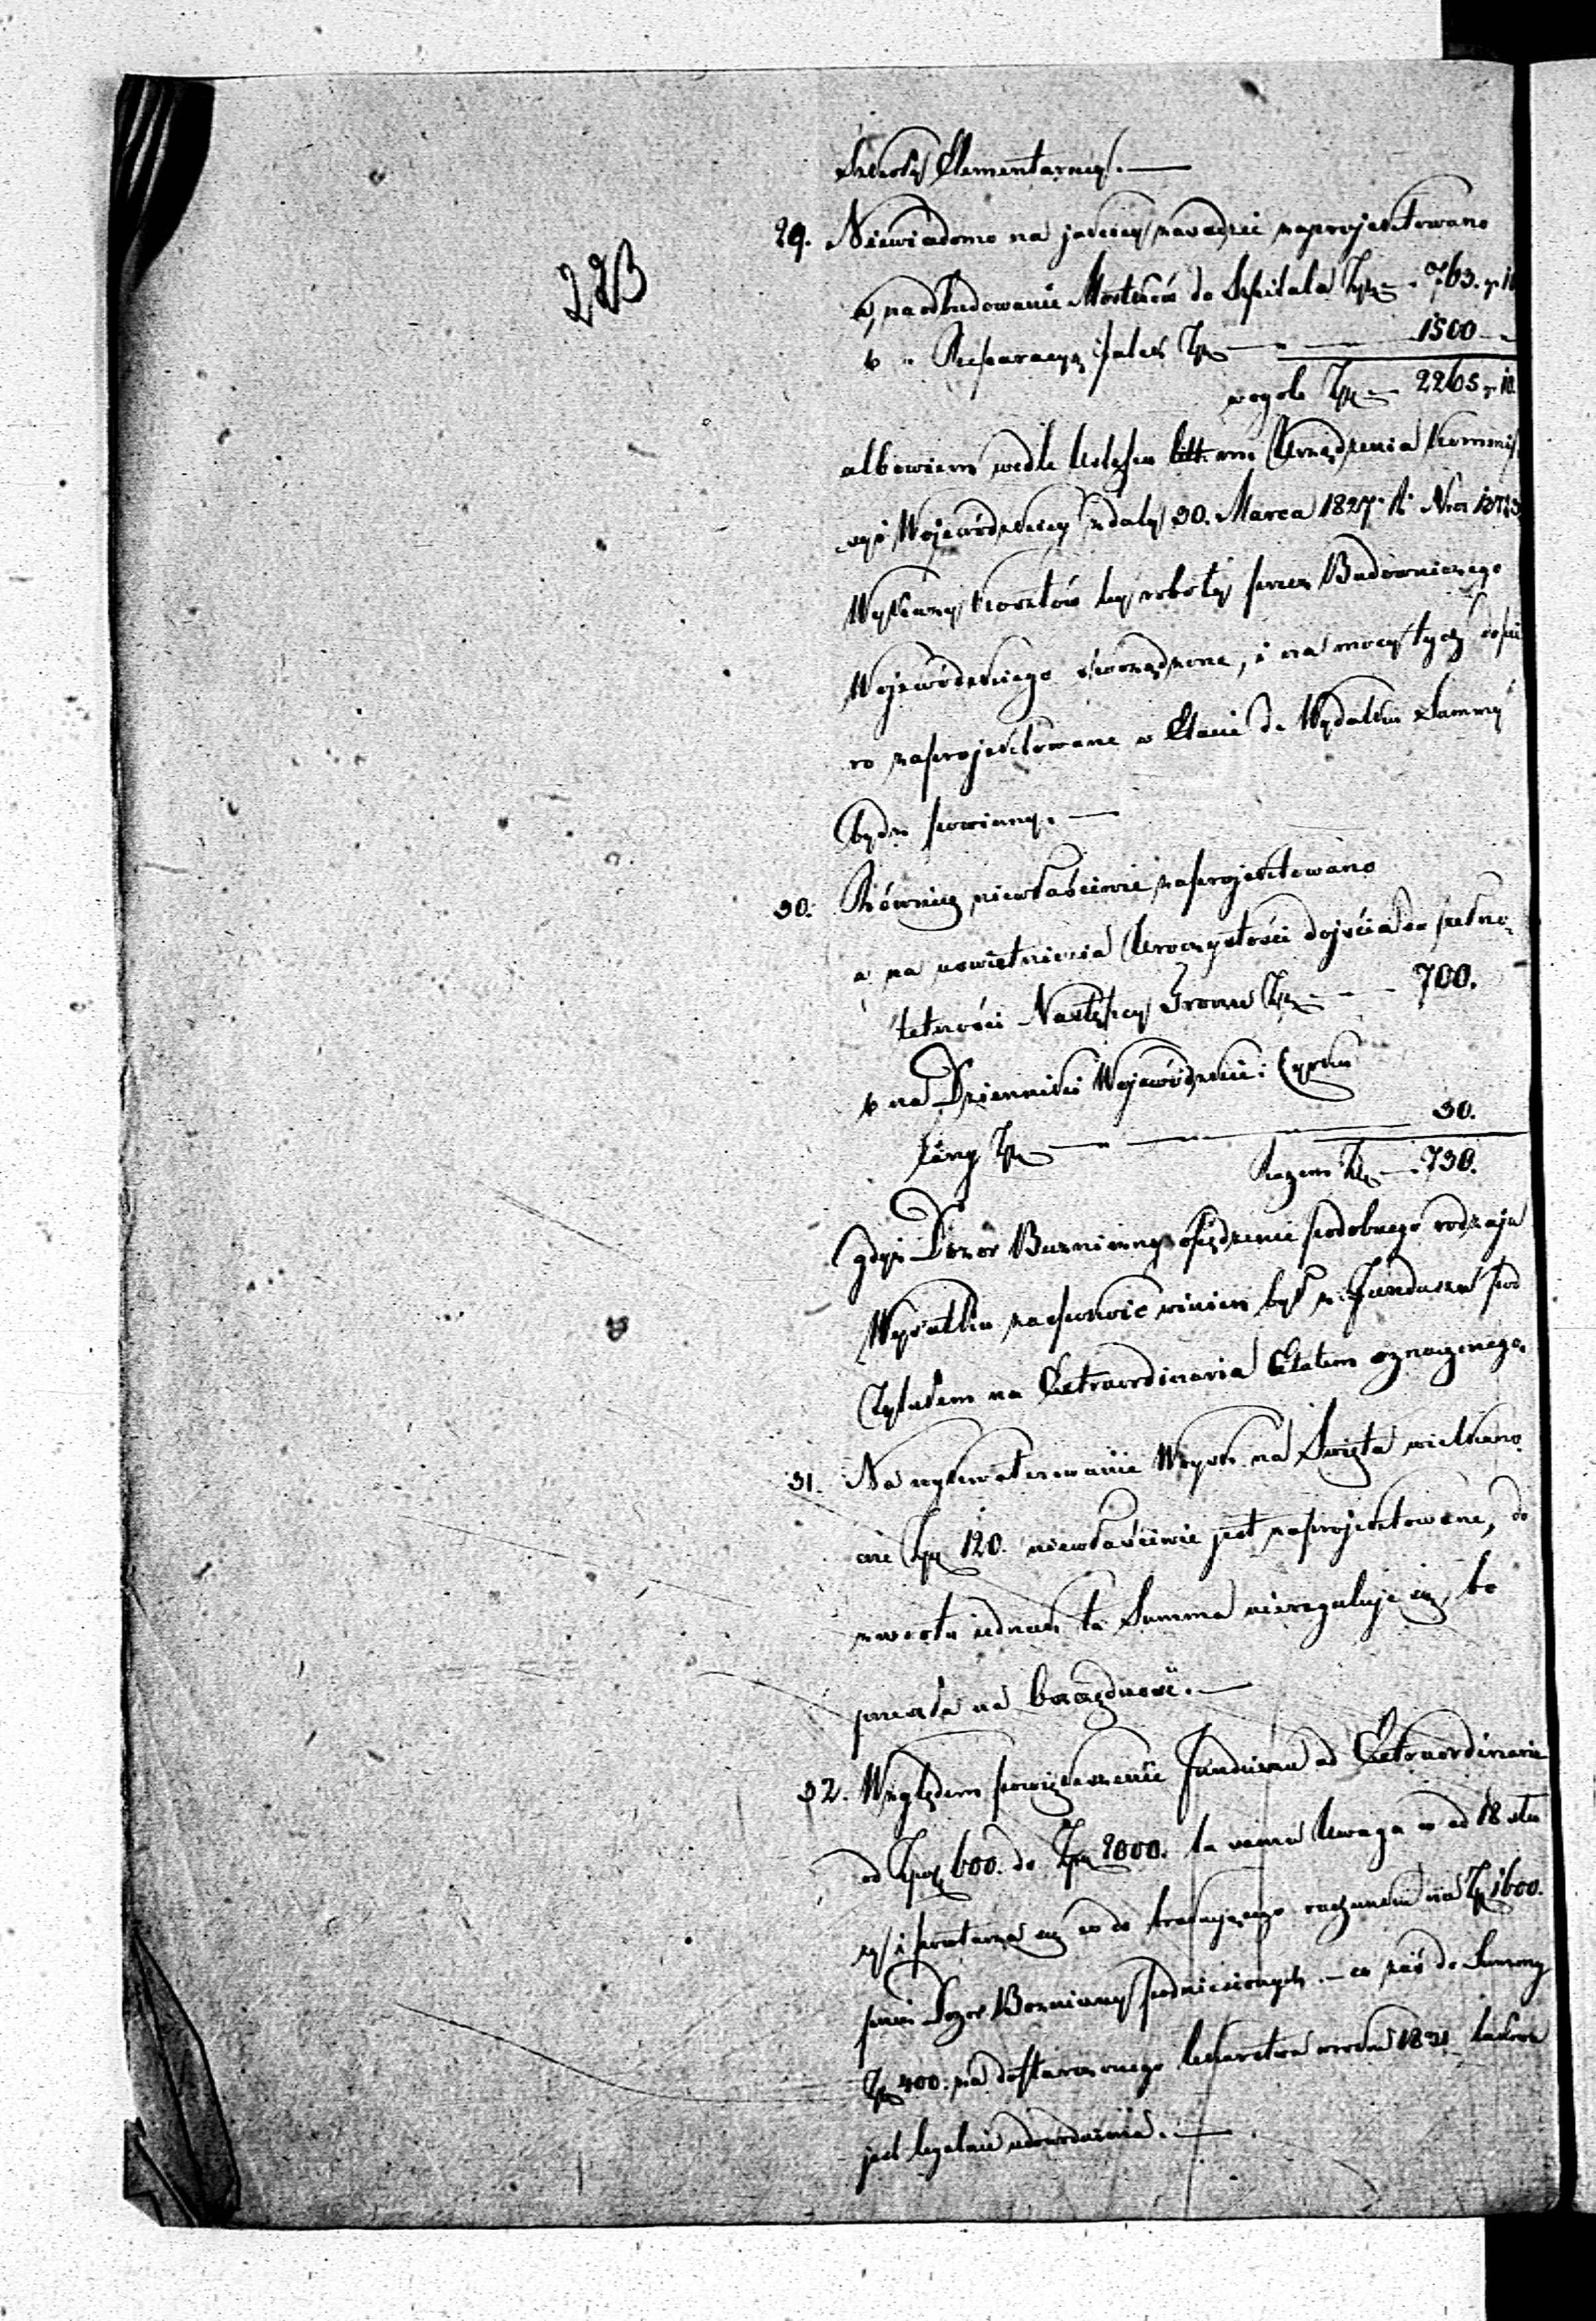 Szkoły Elementarnej. —
29. Niewiadomo na jakiej zasadzie zaprojektowano
a, na odbudowanie Mostków do Szpitala Złp — 765. gr 10
b „ Reparacyą Złp — — 1500 —
wogóle Złp — 2265 gr 10.
albowiem wedle Ustępu Urządzenia Kommis-
syi Wojewódzkiey z daty 30. Marca 1827. R. Nro
Wykazy kosztów tey roboty przez Budowniczego
Wojewódzkiego sporządzone, i na mocy tych dopie
ro zaprojektowane w Etacie do Wydatku Summy
być powinny. —
30. Również niewłaściwie zaprojektowano
a na uświetnienie Uroczystości dojścia do pełno-
letności Następcy Tronu Złp — — 700.
b na Dzienniki Wojewódzkie i Cyrku
larzy Złp — — 30.
Razem Złp — 730.
gdyż Dozór Bożniczny podobnego rodzaju
Wydatku zaspokoić winien być z Funduszu pod
Tytułem na Extraordinaria Etatem oznaczonego,
31. Na wykwaterowanie Woysk na Święta wielkano
cne Złp 120. niewłaściwie jest zaprojektowane, do
zwrotu jednak ta Summa nieregulује się, bo
przeszła na oszczędność. —
32. Względem powiększenia Funduszu ad Extraordinaria
od Złp 600. do Złp 2000. ta sama Uwaga co ad 18 stu
ży i powtarza się co do rachunku na Złp 1600.
przez Dozór Bożniczny podniesionych — co zaś do Summy
Złp 400. na dostarczonego lekarstwa w roku 1831 takowa
jest legalnie udowodniona. —
223